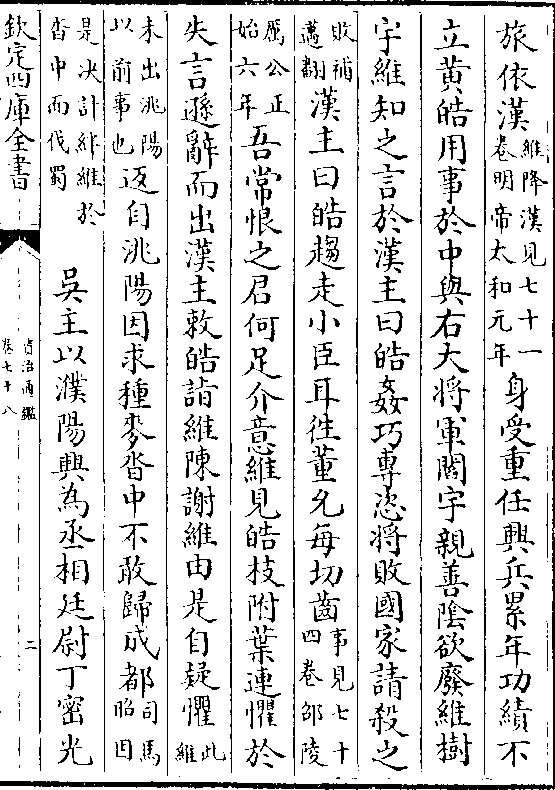 旅依漢維降漢見七十一卷明帝太和元年身受重任興兵累年功績不
立黃皓用事於中與右大將軍閻宇親善陰欲廢維樹
宇維知之言於漢主曰皓姦巧專恣將敗國家請殺之
敗補邁翻漢主曰皓趨走小臣耳往董允每切齒事見七十四卷邵陵
厲公正始六年吾常恨之君何足介意維見皓枝附葉連懼於
失言遜辭而出漢主敕皓詣維陳謝維由是自疑懼此維
未出洮陽以前事也返自洮陽因求種麥沓中不敢歸成都司馬昭因
是決計絆維於沓中而伐蜀 吳主以濮陽興為丞相廷尉丁密光
欽定四庫全書
資治通鑑
卷七十八
二